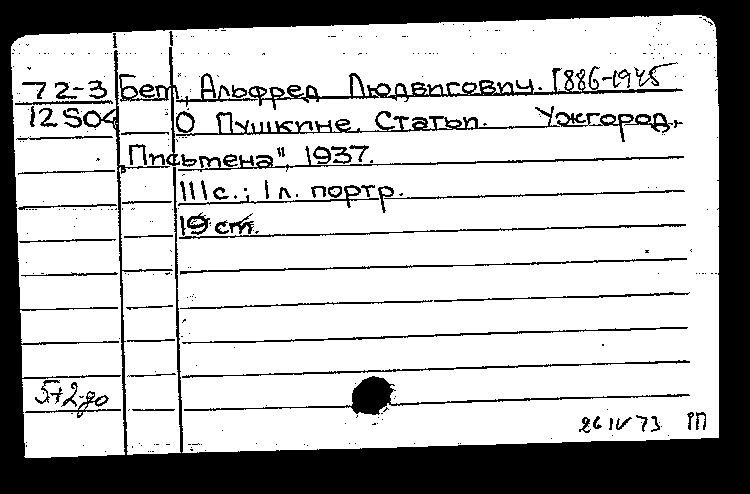 72-3 Бем, Альфред Людвигович. 1886-1945
12504 О Пушкине. Статьи. Ужгород,
„Письмена", 1937.
111 с.; 1 л. портр.
19 cm.
26 IV 73